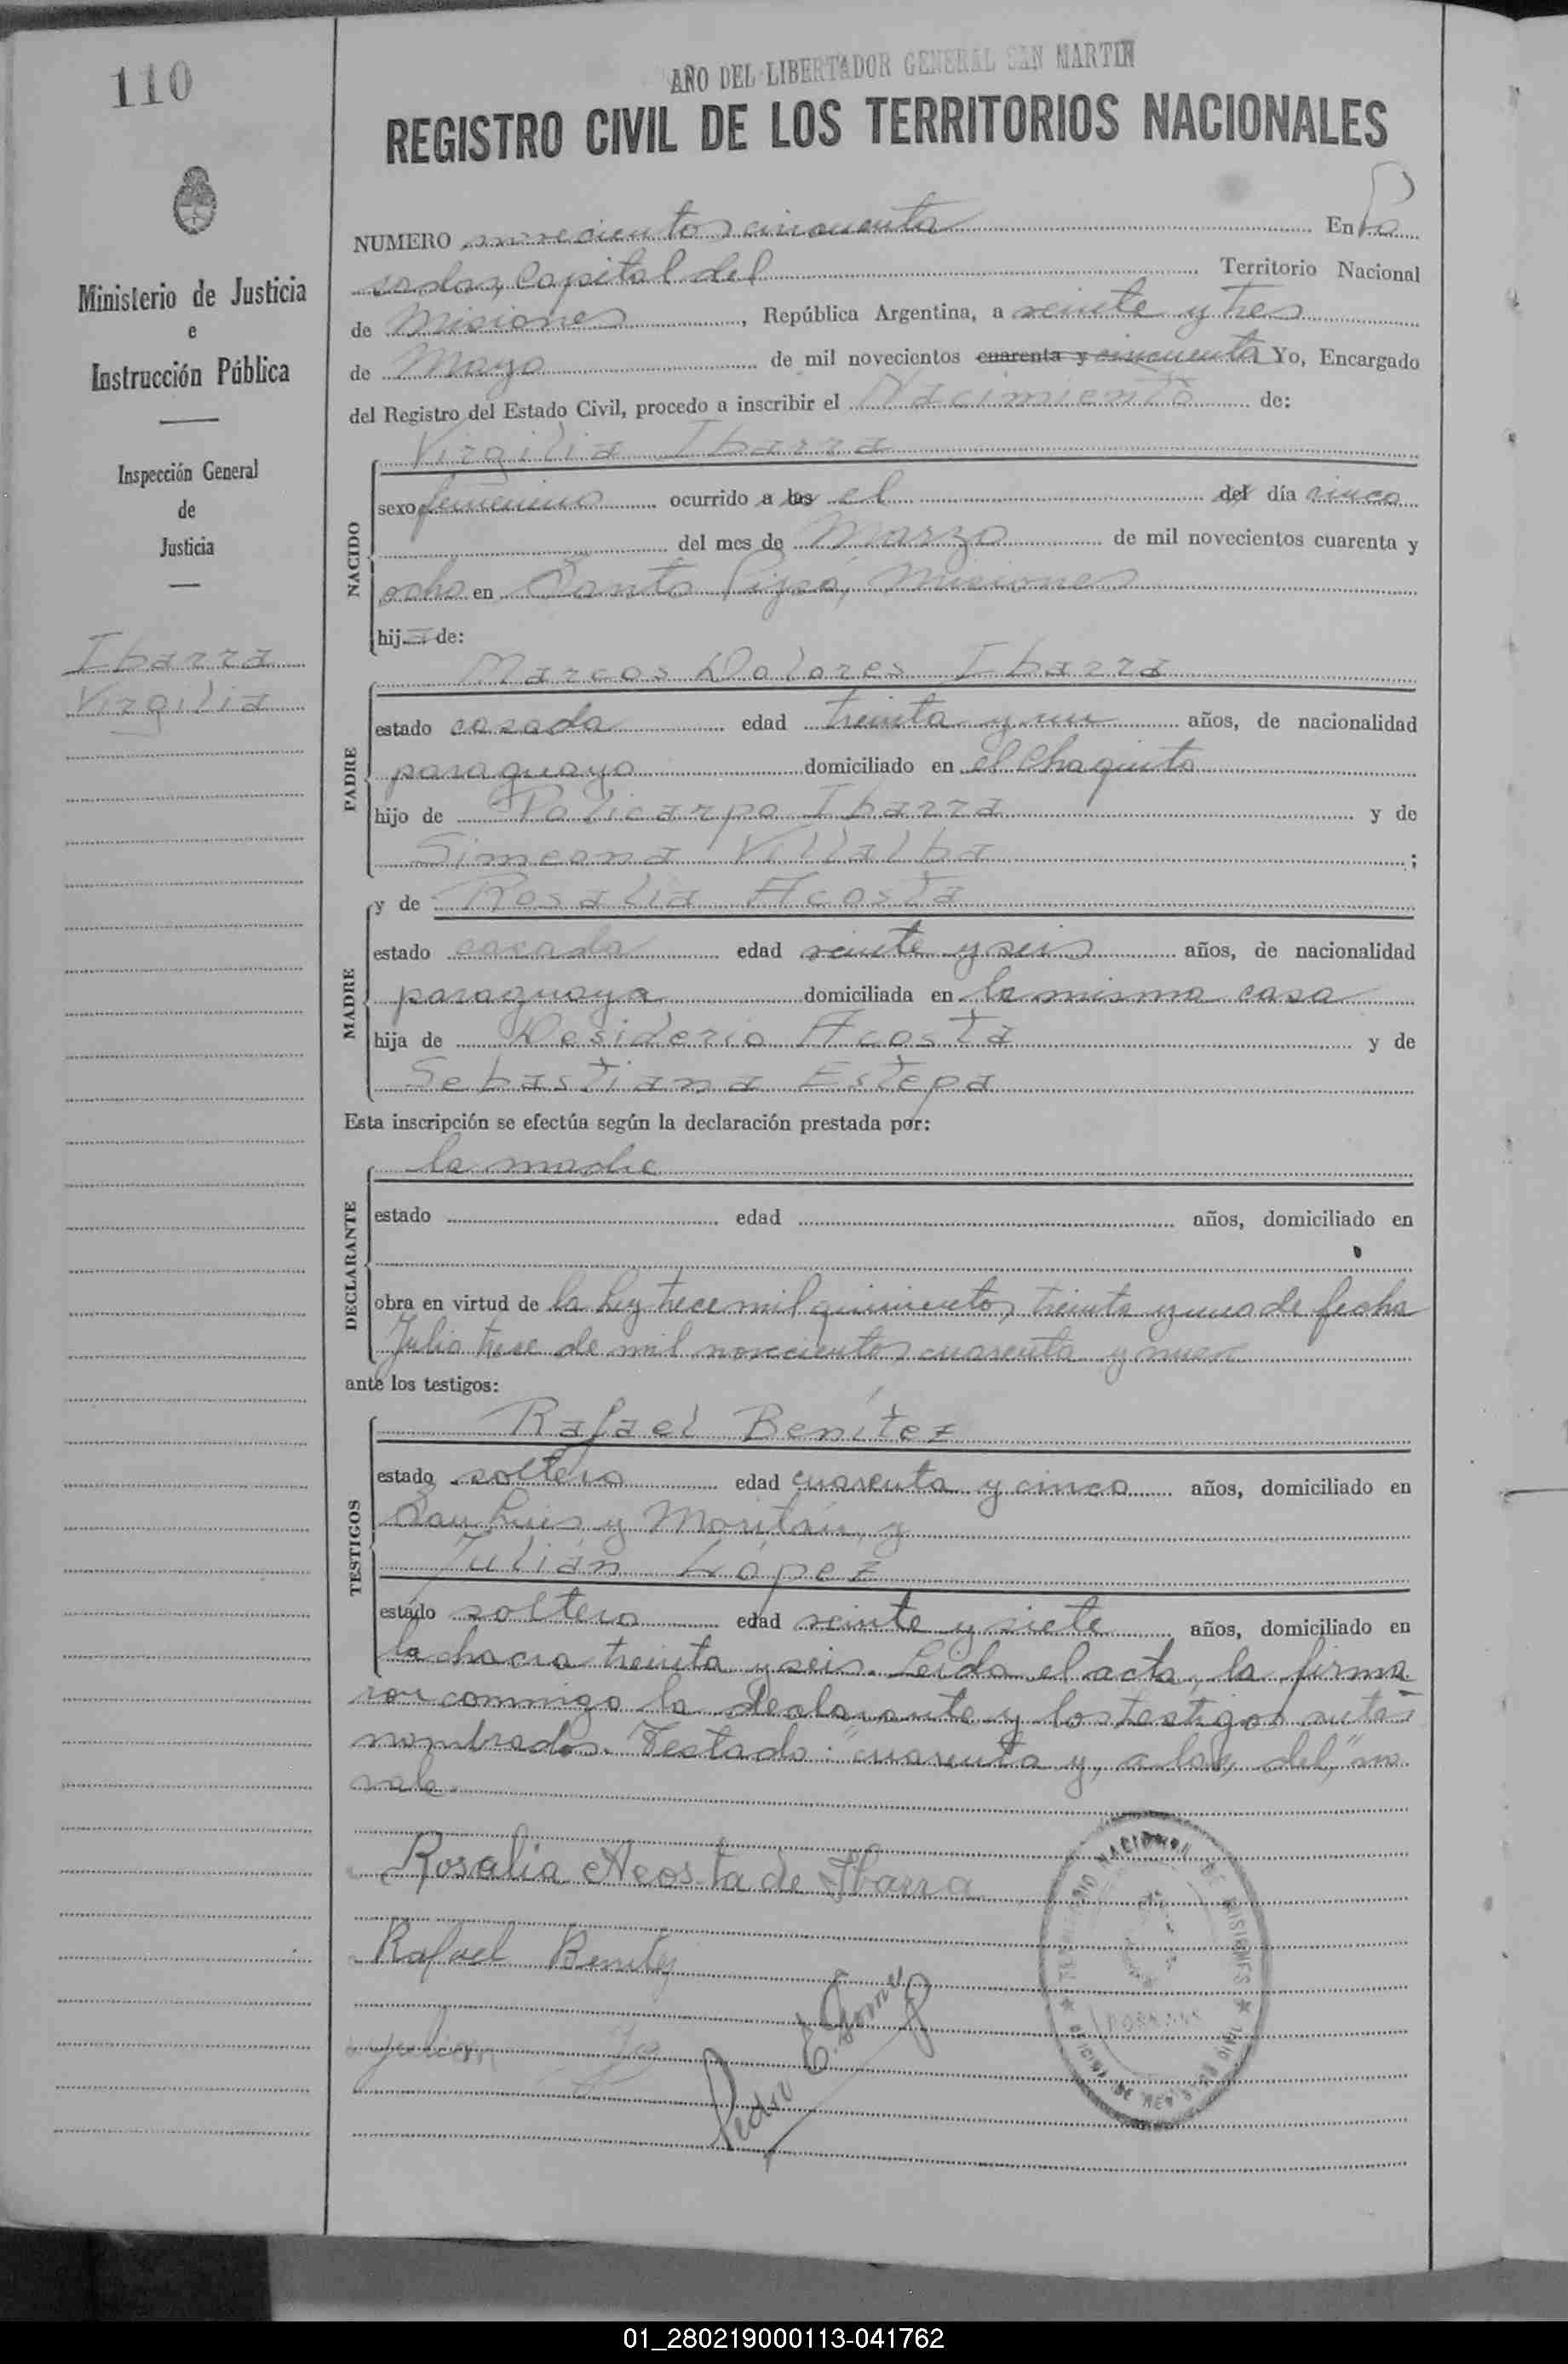 110
AÑO DEL LIBERTADOR GENERAL SAN MARTIN
REGISTRO CIVIL DE LOS TERRITORIOS NACIONALES
Ministerio de Justicia
e
Instrucción Pública
Inspección General
de
Justicia
Ibarra
Virgilia
NUMERO novecientos cincuenta En Po
sadas, Capital del Territorio Nacional
de Misiones, República Argentina, a veinte y tres
de Mayo de mil novecientos cuarenta y cincuenta Yo, Encargado
del Registro del Estado Civil, procedo a inscribir el Nacimiento de:
NACIDO
Virgilia Ibarra
sexo femenino ocurrido a las el del día cinco
del mes de Marzo de mil novecientos cuarenta y
ocho en Santo Pipó, Misiones
hija de:
PADRE
Marcos Dolores Ibarra
estado casado edad treinta y un años, de nacionalidad
paraguaya domiciliado en el Chaquito
hijo de Policarpo Ibarra y de
Simeona Villalba;
MADRE
y de Rosalia Acosta
estado casada edad veinte y seis años, de nacionalidad
paraguaya domiciliada en la misma casa
hija de Desiderio Acosta y de
Sebastiana Estepa
Esta inscripción se efectúa según la declaración prestada por:
DECLARANTE
la madre
estado edad años, domiciliado en
obra en virtud de la Ley trece mil quinientos treinta y uno de fecha
Julio trece de mil novecientos cuarenta y nueve
ante los testigos:
TESTIGOS
Rafael Benítez
estado soltero edad cuarenta y cinco años, domiciliado en
San Luis y y
Julián López
estado soltero edad veinte y siete años, domiciliado en
la chacra treinta y seis. Leída el acta, la firma
ron conmigo la declarante y los testigos antes
nombrados. Testado: "cuarenta y, a las, del," no
vale.
Rosalia Acosta de Ibarra
Rafael Benitez
Julian
Pedro E. Gomez
NACIONAL DE MISIONES
POSADAS
OFICINA DE REGISTRO CIVIL
01_280219000113-041762